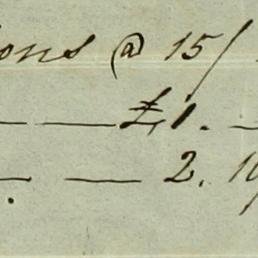 ons @ 15/
— — £1. —
— 2. 10